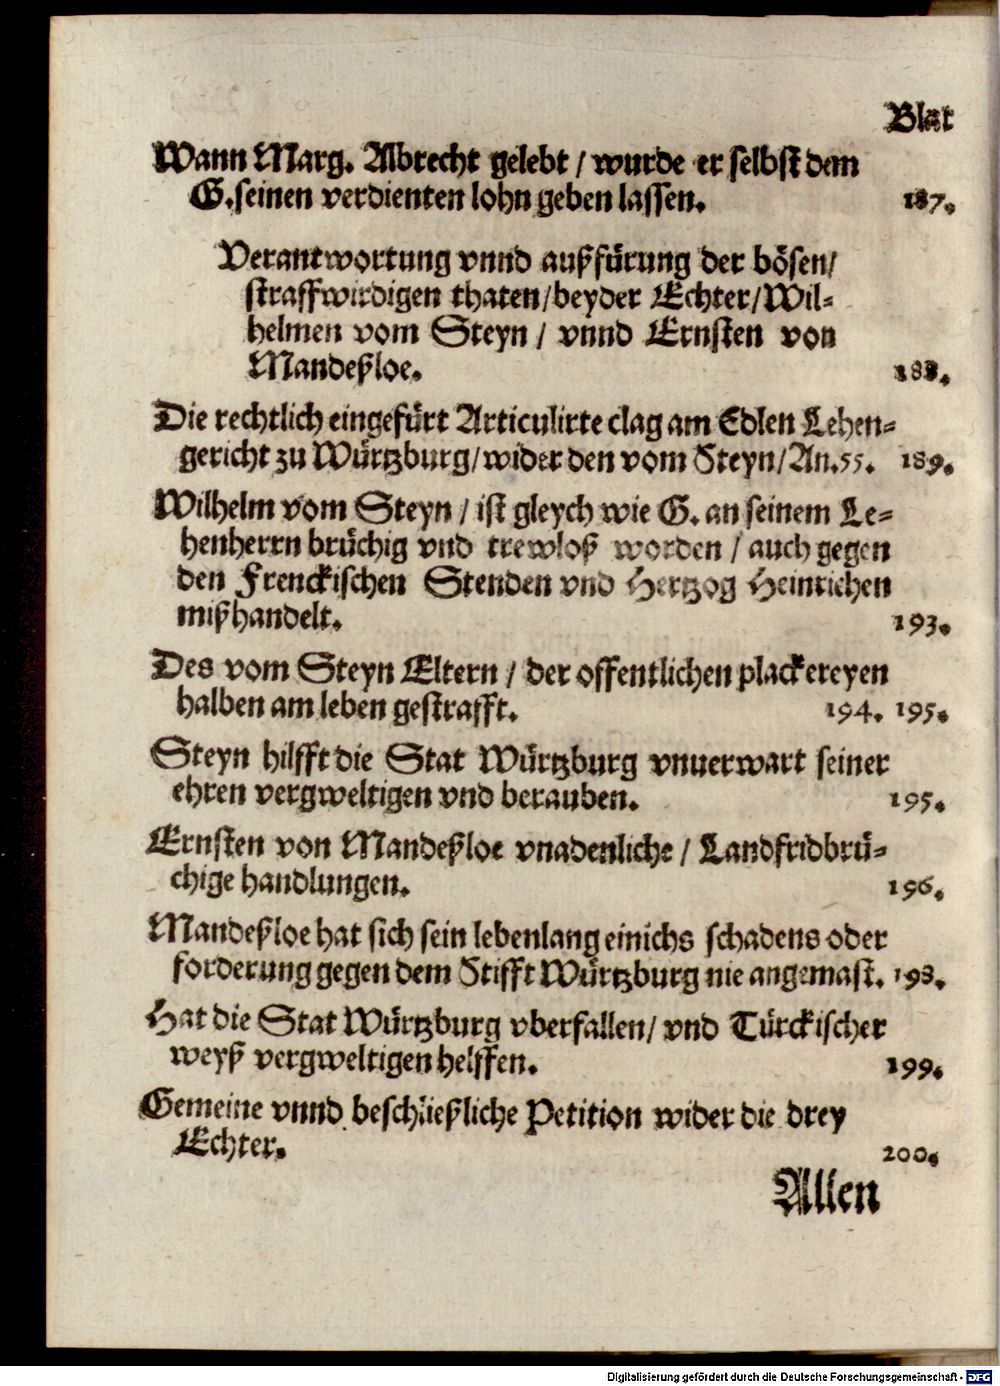 Blat
Wann Marg. Albrecht gelebt / wurde er selbst dem
G. seinen verdienten lohn geben lassen. 187.
Verantwortung vnnd außfürung der bösen/
straffwirdigen thaten/beyder Echter/Wil-
helmen vom Steyn / vnnd Ernsten von
Mandeßloe. 188.
Die rechtlich eingefürt Articulirte clag am Edlen Lehen-
gericht zu Würtzburg/wider den vom Steyn/An.55. 189.
Wilhelm vom Steyn / ist gleych wie G. an seinem Le-
henherrn brüchig vnd trewloß worden / auch gegen
den Frenckischen Stenden vnd Hertzog Heinrichen
mißhandelt. 193.
Des vom Steyn Eltern / der offentlichen plackereyen
halben am leben gestrafft. 194. 195.
Steyn hilfft die Stat Würtzburg vnuerwart seiner
ehren vergweltigen vnd berauben. 195.
Ernsten von Mandeßloe vnadenliche / Landfridbrü-
chige handlungen. 196.
Mandeßloe hat sich sein lebenlang einichs schadens oder
forderung gegen dem Stifft Würtzburg nie angemast. 198.
Hat die Stat Würtzburg vberfallen/ vnd Türckischer
weyß vergweltigen helffen. 199.
Gemeine vnnd beschließliche Petition wider die drey
Echter. 200.
Allen
Digitalisierung gefördert durch die Deutsche Forschungsgemeinschaft - DFG